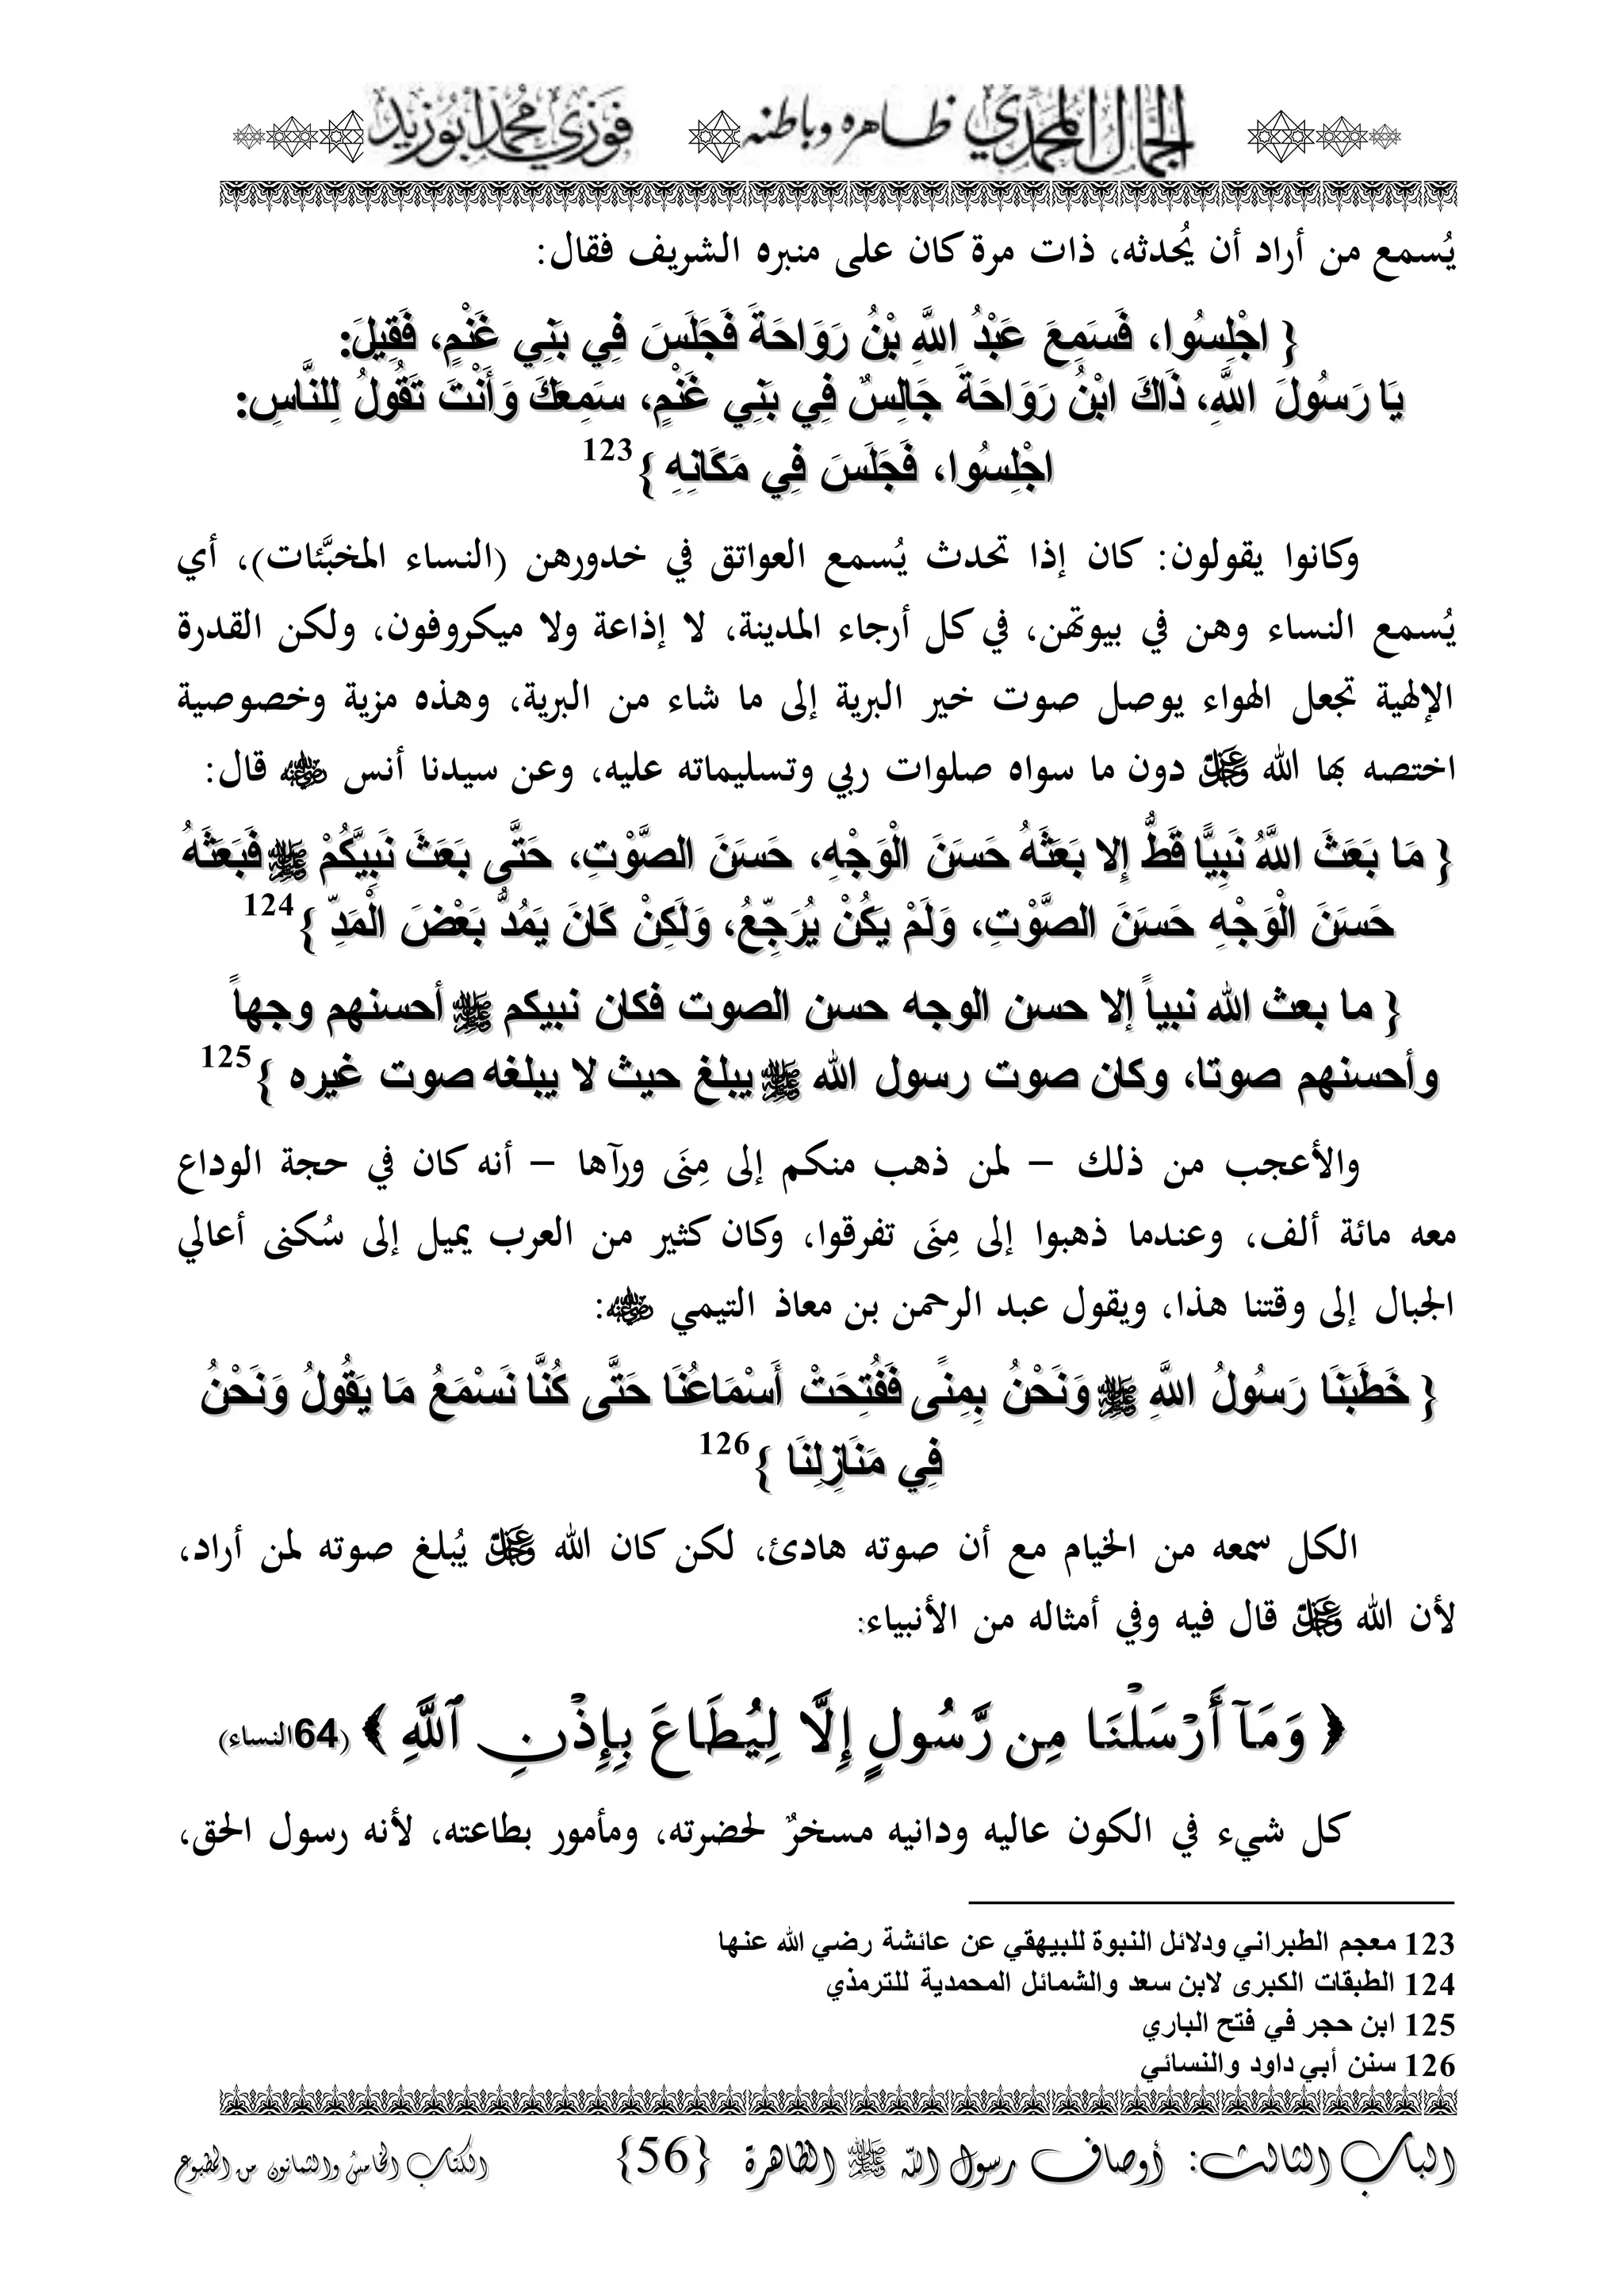 الجمال المحمدي ظاهره وباطنه فوزي محمد أبوزيد
يُسمع من أراد أن يُحدثه، ذات مرة كان على منبره الشريف فقال:
{ اجْلِسُوا، فَسَمِعَ عَبْدُ اللَّهِ بْنُ رَوَاحَةَ فَجَلَسَ فِي بَنِي غَنْمٍ، فَقِيلَ:
يَا رَسُولَ اللَّهِ، ذَاكَ ابْنُ رَوَاحَةَ جَالِسٌ فِي بَنِي غَنْمٍ، سَمِعَكَ وَأَنْتَ تَقُولُ لِلنَّاسِ:
اجْلِسُوا، فَجَلَسَ فِي مَكَانِهِ }123
وكانوا يقولون: كان إذا تحدث يُسمع العواتق في خدورهن (النساء المخبَّئات)، أي
يُسمع النساء وهن في بيوتهن، في كل أرجاء المدينة، لا إذاعة ولا ميكروفون، ولكن القدرة
الإلهية تجعل الهواء يوصل صوت خير البرية إلى ما شاء من البرية، وهذه مزية وخصوصية
اختصه بها الله عز وجل دون ما سواه صلوات ربي وتسليماته عليه، وعن سيدنا أنس رضي الله عنه قال:
{ مَا بَعَثَ اللَّهُ نَبِيًّا قَطُّ إِلا بَعَثَهُ حَسَنَ الْوَجْهِ، حَسَنَ الصَّوْتِ، حَتَّى بَعَثَ نَبِيَّكُمْ ﷺ فَبَعَثَهُ
حَسَنَ الْوَجْهِ حَسَنَ الصَّوْتِ، وَلَمْ يَكُنْ يُرَجِّعُ، وَلَكِنْ كَانَ يَمُدُّ بَعْضَ الْمَدِّ }124
{ ما بعث الله نبياً إلا حسن الوجه حسن الصوت فكان نبيكم ﷺ أحسنهم وجهاً
وأحسنهم صوتا، وكان صوت رسول الله ﷺ يبلغ حيث لا يبلغه صوت غيره }125
والأعجب من ذلك – لمن ذهب منكم إلى مِنَى ورآها – أنه كان في حجة الوداع
معه مائة ألف، وعندما ذهبوا إلى مِنَى تفرقوا، وكان كثير من العرب يميل إلى سُكنى أعالي
الجبال إلى وقتنا هذا، ويقول عبد الرحمن بن معاذ التيمي رضي الله عنه:
{ خَطَبَنَا رَسُولُ اللَّهِ ﷺ وَنَحْنُ بِمِنًى فَفُتِحَتْ أَسْمَاعُنَا حَتَّى كُنَّا نَسْمَعُ مَا يَقُولُ وَنَحْنُ
فِي مَنَازِلِنَا }126
الكل سمعه من الخيام مع أن صوته هادئ، لكن كان الله عز وجل يُبلغ صوته لمن أراد،
لأن الله عز وجل قال فيه وفي أمثاله من الأنبياء:
﴿ وَمَآ أَرْسَلْنَا مِن رَّسُولٍ إِلَّا لِيُطَاعَ بِإِذْنِ ٱللَّهِ ﴾ (64النساء)
كل شيء في الكون عاليه ودانيه مسخرٌ لحضرته، ومأمور بطاعته، لأنه رسول الحق،
123 معجم الطبراني ودلائل النبوة للبيهقي عن عائشة رضي الله عنها
124 الطبقات الكبرى لابن سعد والشمائل المحمدية للترمذي
125 ابن حجر في فتح الباري
126 سنن أبي داود والنسائي
الباب الثالث: أوصاف رسول الله ﷺ الظاهرة {56} الكتاب الخامس والثمانون من المطبوع